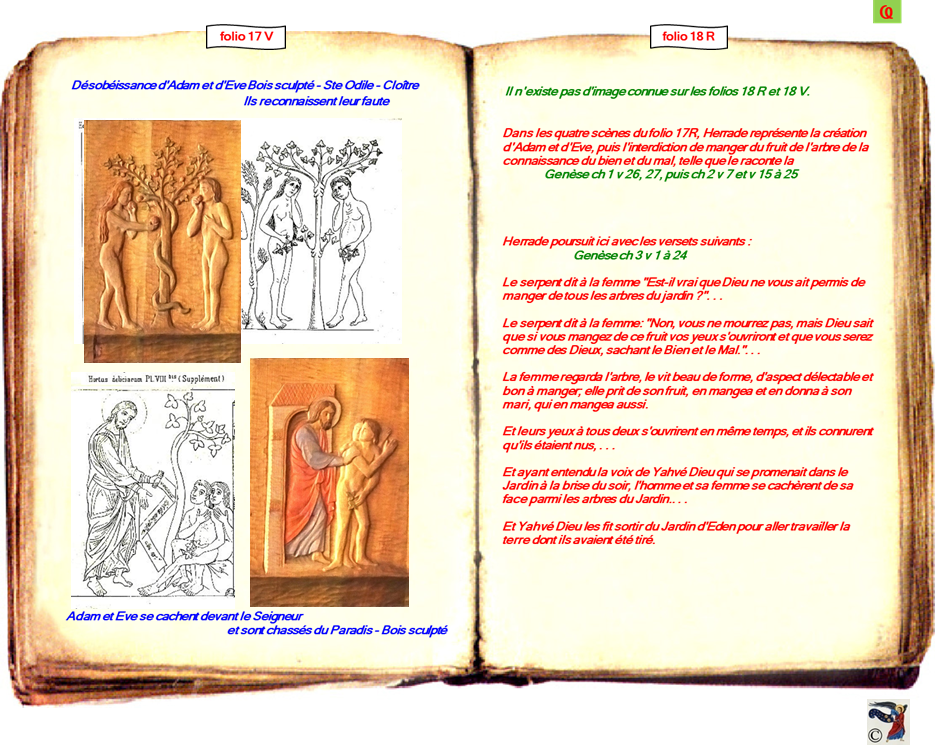 folio 17 V
Désobéissance d'Adam et d'Eve Bois sculpté - Ste Odile - Cloître
Ils reconnaissent leur faute
Hortus deliciarum Pl. VIII bis (Supplément)
Adam et Eve se cachent devant le Seigneur
et sont chassés du Paradis - Bois sculpté
folio 18 R
Il n'existe pas d'image connue sur les folios 18 R et 18 V.
Dans les quatre scènes du folio 17R, Herrade représente la création
d'Adam et d'Eve, puis l'interdiction de manger du fruit de l'arbre de la
connaissance du bien et du mal, telle que le raconte la
Genèse ch 1 v 26, 27, puis ch 2 v 7 et v 15 à 25
Herrade poursuit ici avec les versets suivants :
Genèse ch 3 v 1 à 24
Le serpent dit à la femme "Est-il vrai que Dieu ne vous ait permis de
manger de tous les arbres du jardin ?". . .
Le serpent dit à la femme: "Non, vous ne mourrez pas, mais Dieu sait
que si vous mangez de ce fruit vos yeux s'ouvriront et que vous serez
comme des Dieux, sachant le Bien et le Mal.". . .
La femme regarda l'arbre, le vit beau de forme, d'aspect délectable et
bon à manger; elle prit de son fruit, en mangea et en donna à son
mari, qui en mangea aussi.
Et leurs yeux à tous deux s'ouvrirent en même temps, et ils connurent
qu'ils étaient nus, . . .
Et ayant entendu la voix de Yahvé Dieu qui se promenait dans le
Jardin à la brise du soir, l'homme et sa femme se cachèrent de sa
face parmi les arbres du Jardin.. . .
Et Yahvé Dieu les fit sortir du Jardin d'Eden pour aller travailler la
terre dont ils avaient été tiré.
©